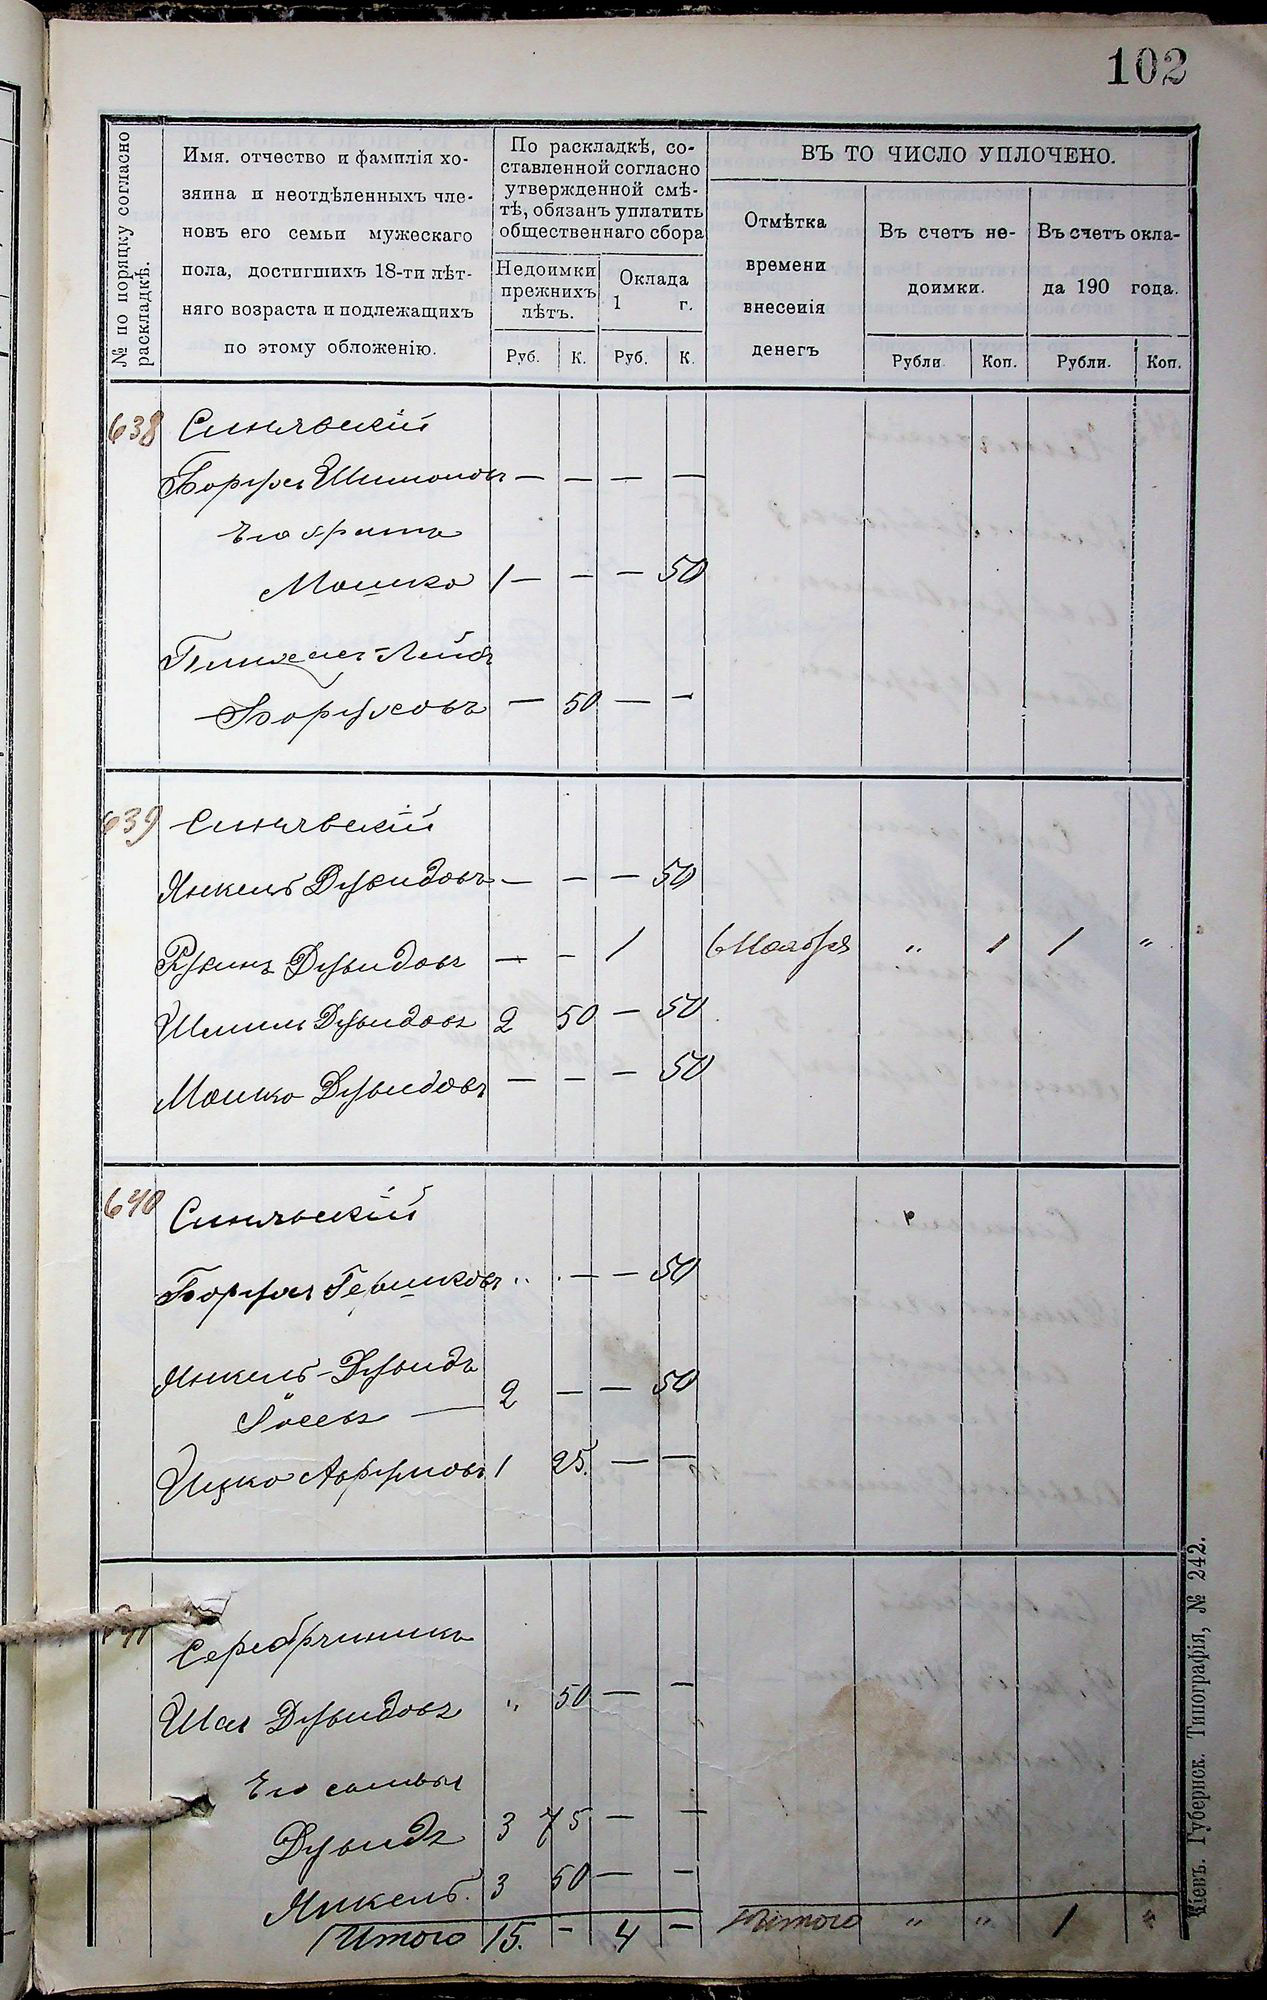 102
№ по порядку согласно
раскладкѣ.
Имя. отчество и фамилія хо-
зяина и неотдѣленныхъ чле-
новъ его семьи мужескаго
пола, достигшихъ 18-ти лѣт-
няго возраста и подлежащихъ
по этому обложенію.
По раскладкѣ, со-
ставленной согласно
утвержденной смѣ-
тѣ, обязанъ уплатить
общественнаго сбора
Недоимки
прежнихъ
лѣтъ.
Оклада
1 г.
Руб. К. Руб. К.
ВЪ ТО ЧИСЛО УПЛОЧЕНО.
Отмѣтка
времени
внесенія
денегъ
Въ счетъ не-
доимки.
Въ счетъ окла-
да 190 года.
Рубли Коп. Рубли. Коп.
638 Синявскій
Борухъ Шимоновъ — — — —
Его братъ
Мошко 1 — — — 50
Пинхасъ-Лейбъ
Боруховъ — 50 — —
639 Синявскій
Янкель Дувидовъ — — — 50
Рувинъ Дувидовъ — — 1 6 Ноября " 1 1 "
Шмиль Дувидовъ 2 50 — 50
Мошко Дувидовъ — — — 50
640 Синявскій
Борухъ Гершковъ " — — 50
Янкель-Дувидъ
Іосевъ — 2 — — 50
Ицко Аврумовъ 1 25. — —
641
Серебрчиникъ
Шая Дувидовъ " 50 — —
Его сыновья
Дувидъ 3 75 — —
Янкель. 3 50 — —
Итого 15. — 4 — Итого " " 1 "
Кіевъ. Губернск. Типографія, № 242.